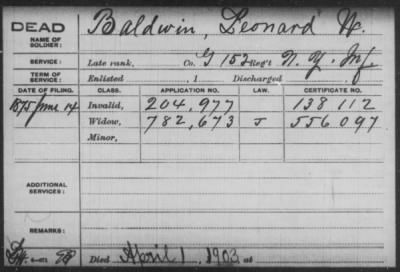 DEAD
Baldwin, Leonard W.
NAME OF SOLDIER:
SERVICE: Late rank, Co. G 152 Reg't N. Y. Inf.
TERM OF SERVICE: Enlisted , 1 Discharged , 1
DATE OF FILING. CLASS. APPLICATION NO. LAW. CERTIFICATE NO.
1875 June 14 Invalid, 204,977 138112
Widow, 782,673 J 556097
Minor,
ADDITIONAL SERVICES:
REMARKS:
Died April 1 1903 at